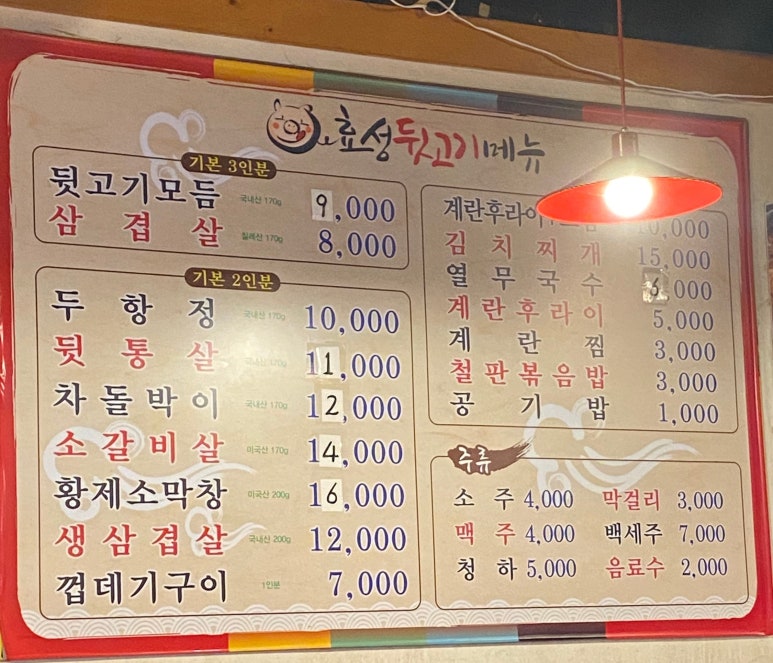 효성뒷고기메뉴
기본 3인분
뒷고기모듬 국내산 170g 9,000
삼겹살 칠레산 170g 8,000
기본 2인분
두항정 국내산 170g 10,000
뒷통살 국내산 170g 11,000
차돌박이 국내산 170g 12,000
소갈비살 미국산 170g 14,000
황제소막창 미국산 200g 16,000
생삼겹살 국내산 200g 12,000
껍데기구이 1인분 7,000
계란후라이 10,000
김치찌개 15,000
열무국수 6,000
계란후라이 5,000
계란찜 3,000
철판볶음밥 3,000
공기밥 1,000
주류
소주 4,000 막걸리 3,000
맥주 4,000 백세주 7,000
청하 5,000 음료수 2,000